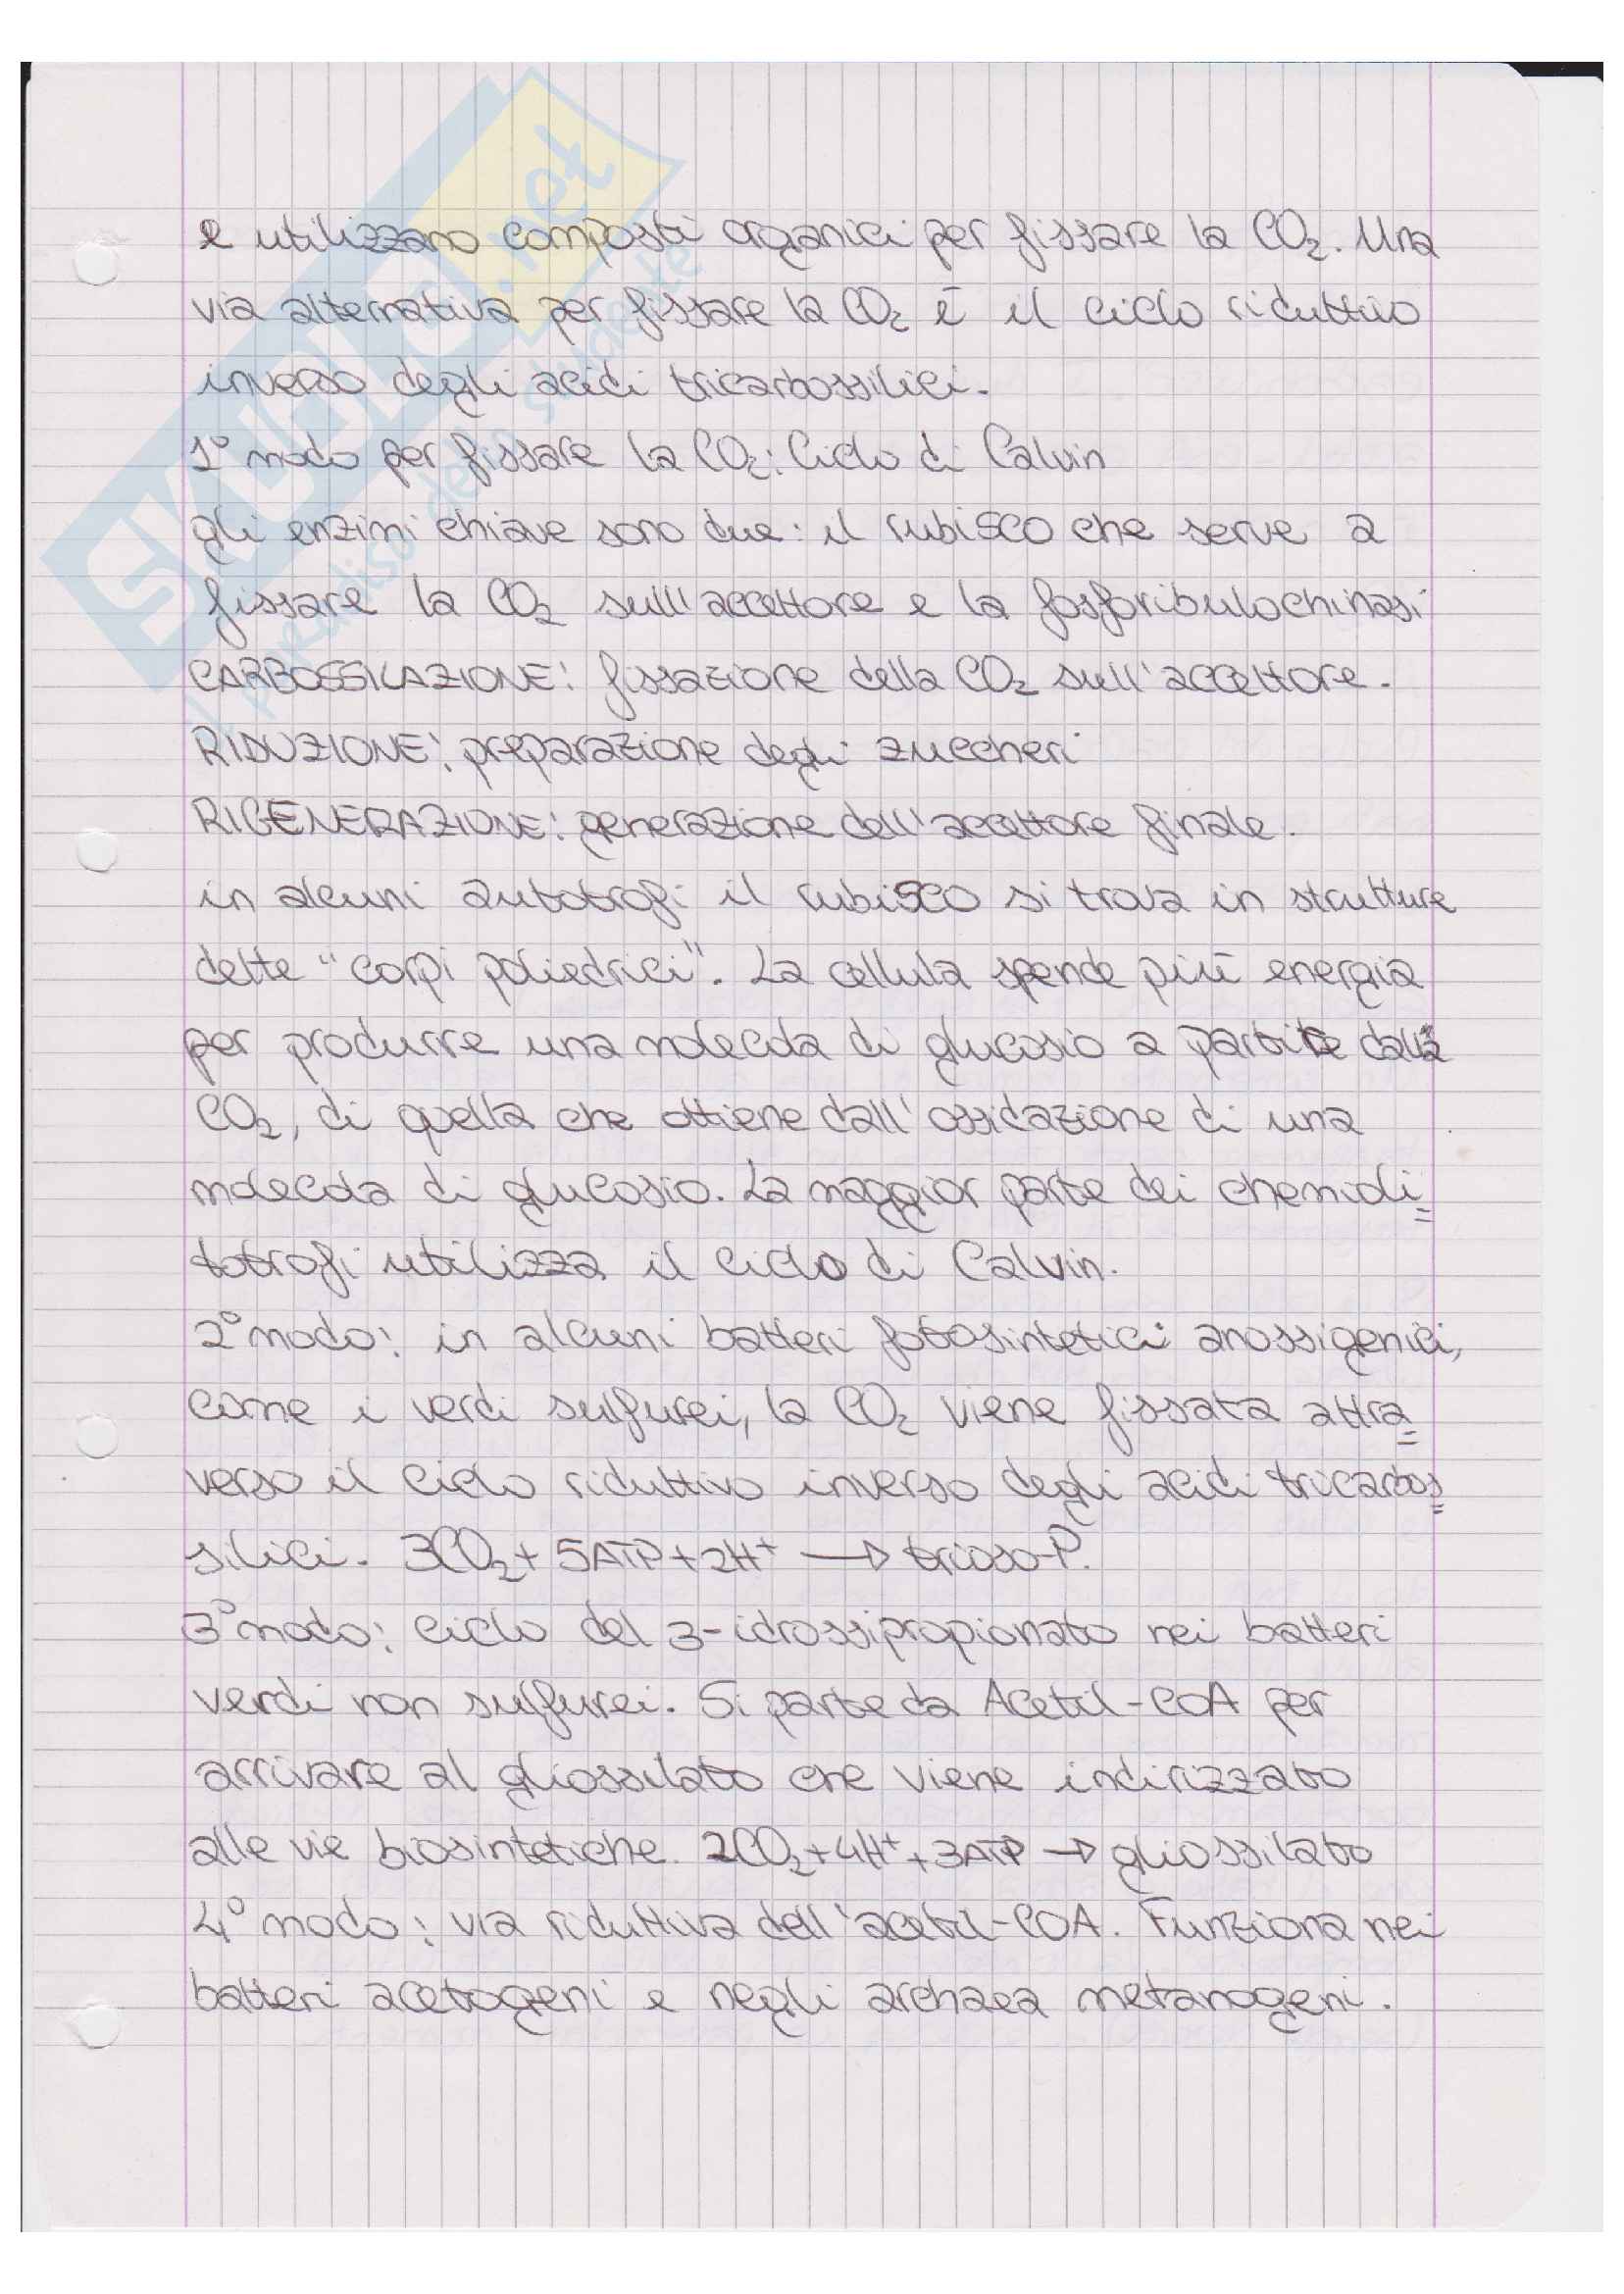 e utilizzano composti organici per fissare la CO₂. Una
via alternativa per fissare la CO₂ è il ciclo riduttivo
inverso degli acidi tricarbossilici.
1° modo per fissare la CO₂: Ciclo di Calvin
gli enzimi chiave sono due: il rubisco che serve a
fissare la CO₂ sull'accettore e la fosforibulochinasi
CARBOSSILAZIONE: fissazione della CO₂ sull'accettore.
RIDUZIONE: preparazione degli zuccheri
RIGENERAZIONE: generazione dell'accettore finale.
in alcuni autotrofi il rubisco si trova in strutture
dette "corpi poliedrici". La cellula spende più energia
per produrre una molecola di glucosio a partire dalla
CO₂, di quella che ottiene dall'ossidazione di una
molecola di glucosio. La maggior parte dei chemioli=
totrofi utilizza il ciclo di Calvin.
2° modo: in alcuni batteri fotosintetici anossigenici,
come i verdi sulfurei, la CO₂ viene fissata attra=
verso il ciclo riduttivo inverso degli acidi tricarbos=
silici. 3CO₂ + 5ATP + 2H⁺ → trioso-P.
3° modo: ciclo del 3-idrossipropionato nei batteri
verdi non sulfurei. Si parte da Acetil-COA per
arrivare al gliossilato che viene indirizzato
alle vie biosintetiche. 2CO₂ + 4H⁺ + 3ATP → gliossilato
4° modo: via riduttiva dell'acetil-COA. Funziona nei
batteri acetogeni e negli archaea metanogeni.